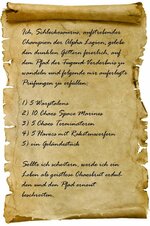 Ich, Schlachssinuus, aufstrebender
Champion der Alpha Legion, gelobe
den dunklen Göttern feierlich, auf
dem Pfad der Tugend Verderbnis zu
wandeln und folgende mir auferlegte
Prüfungen zu erfüllen:
1) 5 Warptalons
2) 10 Chaos Space Marines
3) 5 Chaos Terminatoren
4) 5 Havocs mit Raketenwerfern
5) ein Geländestück
Sollte ich scheitern, werde ich ein
Leben als geistlose Chaosbrut erdul-
den und den Pfad erneut
beschreiten.